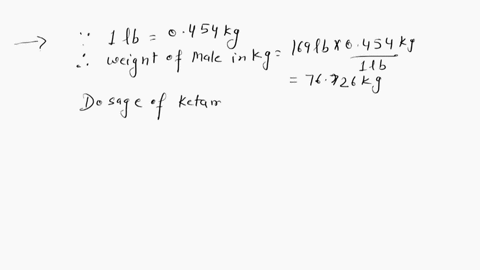 → ∵ 1 lb = 0.454 kg
∴ weight of Male in kg = 169 lb × 0.454 kg / 1 lb
= 76.726 kg
Dosage of Ketam